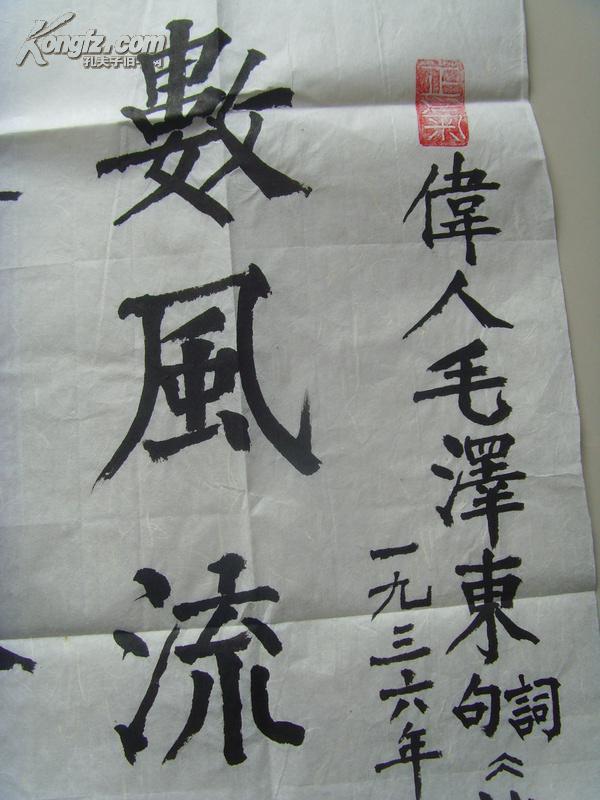 Kongfz.com
孔夫子旧书网
正氣
偉人毛澤東詞句《
一九三六年
數風流